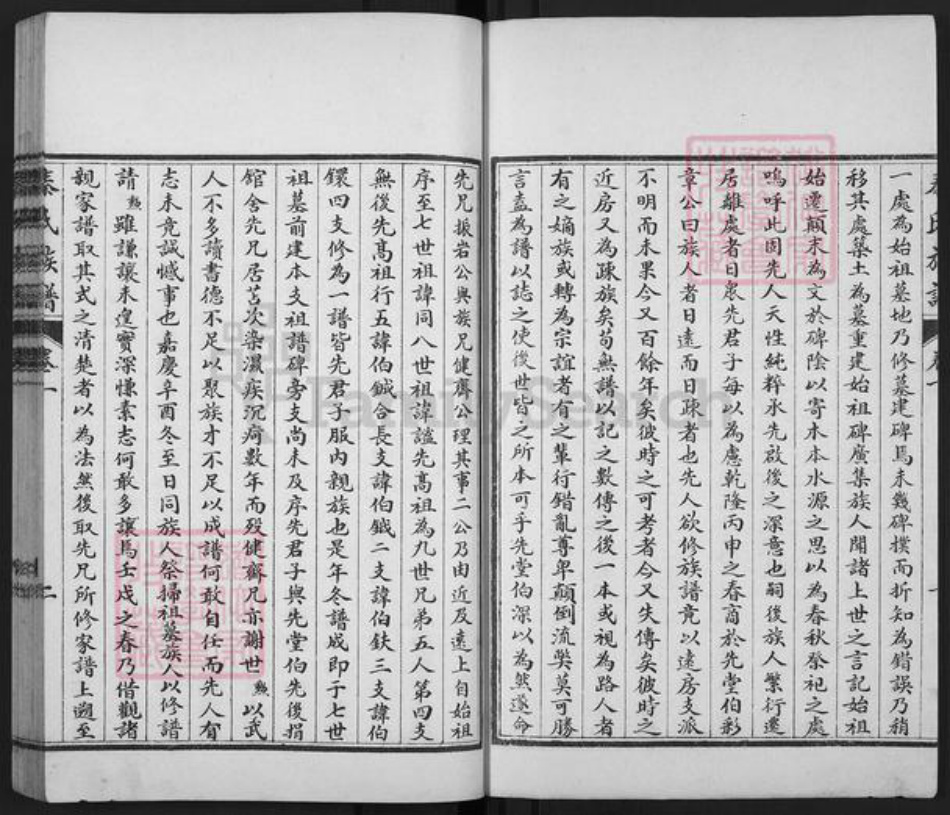 一處為始祖墓地乃修墓建碑焉未幾碑撲而折知為錯誤乃稍
移其處築土為墓重建始祖碑廣集族人聞諸上世之言記始祖
始遷顛末為文於碑陰以寄木本水源之思以為春秋祭祀之處
嗚呼此固先人天性純粹承先啟後之深意也嗣後族人繁衍遷
居離處者日衆先君子每以為慮乾隆丙申之春商於先堂伯彩
章公曰族人者日遠而日疎者也先人欲修族譜竟以遠房支派
不明而未果今又百餘年矣彼時之可考者今又失傳矣彼時之
近房又為疎族矣苟無譜以記之數傳之後一本或視為路人者
有之嫡族或轉為宗誼者有之輩行錯亂尊卑顛倒流獘莫可勝
言盍為譜以誌之使後世皆之所本可乎先堂伯深以為然遂命
先兄振岩公與族兄健齋公理其事二公乃由近及遠上自始祖
序至七世祖諱同八世祖諱謐先高祖為九世兄弟五人第四支
無後先高祖行五諱伯鉞合長支諱伯鉞二支諱伯鈇三支諱伯
鐶四支修為一譜皆先君子服內親族也是年冬譜成即于七世
祖墓前建本支祖譜碑旁支尚未及序先君子與先堂伯先後捐
館舍先兄居苫次染濕疾沉疴數年而歿健齋兄亦謝世 勲 以武
人不多讀書德不足以聚族才不足以成譜何敢自任而先人有
志未竟誠憾事也嘉慶辛酉冬至日同族人祭掃祖墓族人以修譜
請 勲 雖謙讓未遑實深慊素志何敢多讓焉壬戌之春乃借觀諸
親家譜取其式之清楚者以為法然後取先兄所修家譜上遡至
秦氏族譜 卷一 二
FamilySearch